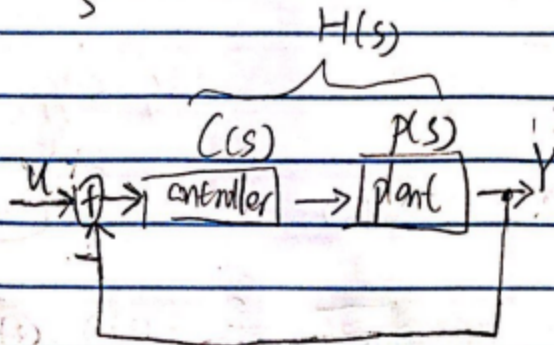 H(s)
C(s) P(s)
u + controller plant Y
-